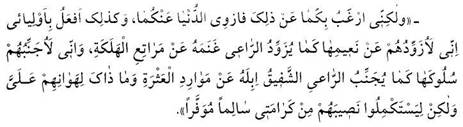 ـ «ولٰكِنّى اَرْغَبُ بِكُمَا عَنْ ذٰلِكَ فَاَزْوِى الدُّنْيَا عَنْكُمَا، وَكَذٰلِكَ اَفْعَلُ بِاَوْلِيائى
اِنّى لَاَزُوْدُهُمْ عَنْ نَعيمِها كَما يُزَوِّدُ الرّاعى غَنَمَهُ عَنْ مَراتِعِ الْهَلَكَةِ، وَاِنّى لَاُجَنِّبُهُمْ
سُلُوكَها كَمٰا يُجَنِّبُ الرّاعىِ الشَّفيقُ اِبِلَهُ عَنْ مَوارِدِ الْعَثْرَةِ وَمٰا ذاكَ لِهَوانِهِمْ عَلَىَّ
وَلكِنْ لِيَسْتَكْمِلُوا نَصيبَهُمْ مِنْ كَرامَتى سالِماً مُوَفَّراً».